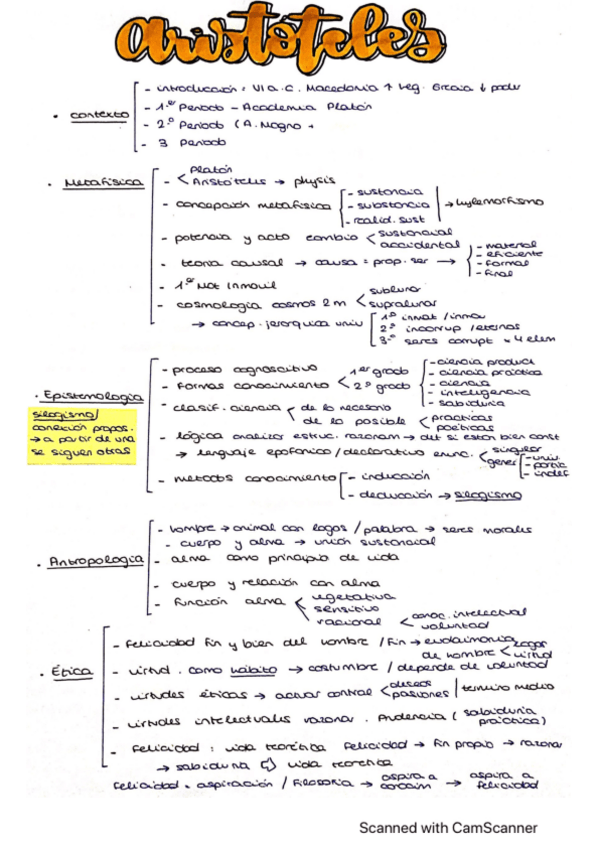 aristóteles
- introducción = VI a.C. Macedonia ↑ Heg. Grecia ↓ poder
· contexto
- 1.er Periodo - Academia Platón
- 2.º Periodo (A. Magno +
- 3 Periodo
· Metafísica
- < Platón
Aristóteles → physis
- concepción metafísica
- sustancia
- substancia
- realid. sust
→ hylemorfismo
- potencia y acto cambio < sustancial
accidental
- teoria causal → causa = prop. ser →
- material
- eficiente
- formal
- final
- 1er Mot Inmovil
- cosmologia cosmos 2 m < sublunar
supralunar
→ concep. jerarquica univ
1º innat / inmov
2º incorrup / eternos
3º seres corrupt = 4 elem
· Epistemologia
silogismo/
conexión propos.
→ a partir de una
se siguen otras
- proceso cognoscitivo
- formas conocimiento < 1er grado
2º grado
- ciencia product
- ciencia práctica
- ciencia
- inteligencia
- sabiduria
- clasif. ciencia < de lo necesario
de lo posible < practicas
poéticas
- lógica analizar estruc. razonam → det si estan bien const
→ lenguaje apofonico / declarativo enunc. < singular
gener
- univ.
- partic
- indef
- metodos conocimiento
- inducción
- deducción → silogismo
· Antropologia
- hombre → animal con logos / palabra → seres morales
- cuerpo y alma → unión sustancial
- alma como principio de vida
- cuerpo y relación con alma
- función alma < vegetativa
sensitivo
racional < conoc. intelectual
voluntad
· Ética
- felicidad fin y bien del hombre / fin → eudaimonia
de hombre < logos
virtud
- virtud. como hábito → costumbre / depende de voluntad
- virtudes éticas → actuar control < deseos
pasiones | termino medio
- virtudes intelectuales razonar. Prudencia (sabiduria
práctica)
- felicidad: vida teorética felicidad → fin propio → razonar
→ sabiduria ⇨ vida teoretica
felicidad = aspiración / filosofia → aspira a → aspira a
felicidad
Scanned with CamScanner